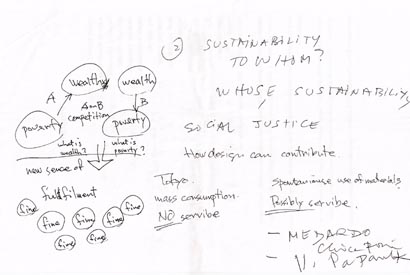 wealthy
wealth
A
A→B
competition
B
poverty
poverty
what is
wealth?
what is
poverty?
new sense of
fulfilment
fine
fine
fine
fine
fine
fine
fine
②
SUSTAINABILITY
TO WHOM?
WHOSE SUSTAINABILITY
SOCIAL JUSTICE
How design can contribute.
Tokyo.
mass consumption.
NO servibe
use of materials
Possibly servibe.
- MEDARDO
- V. Papanek